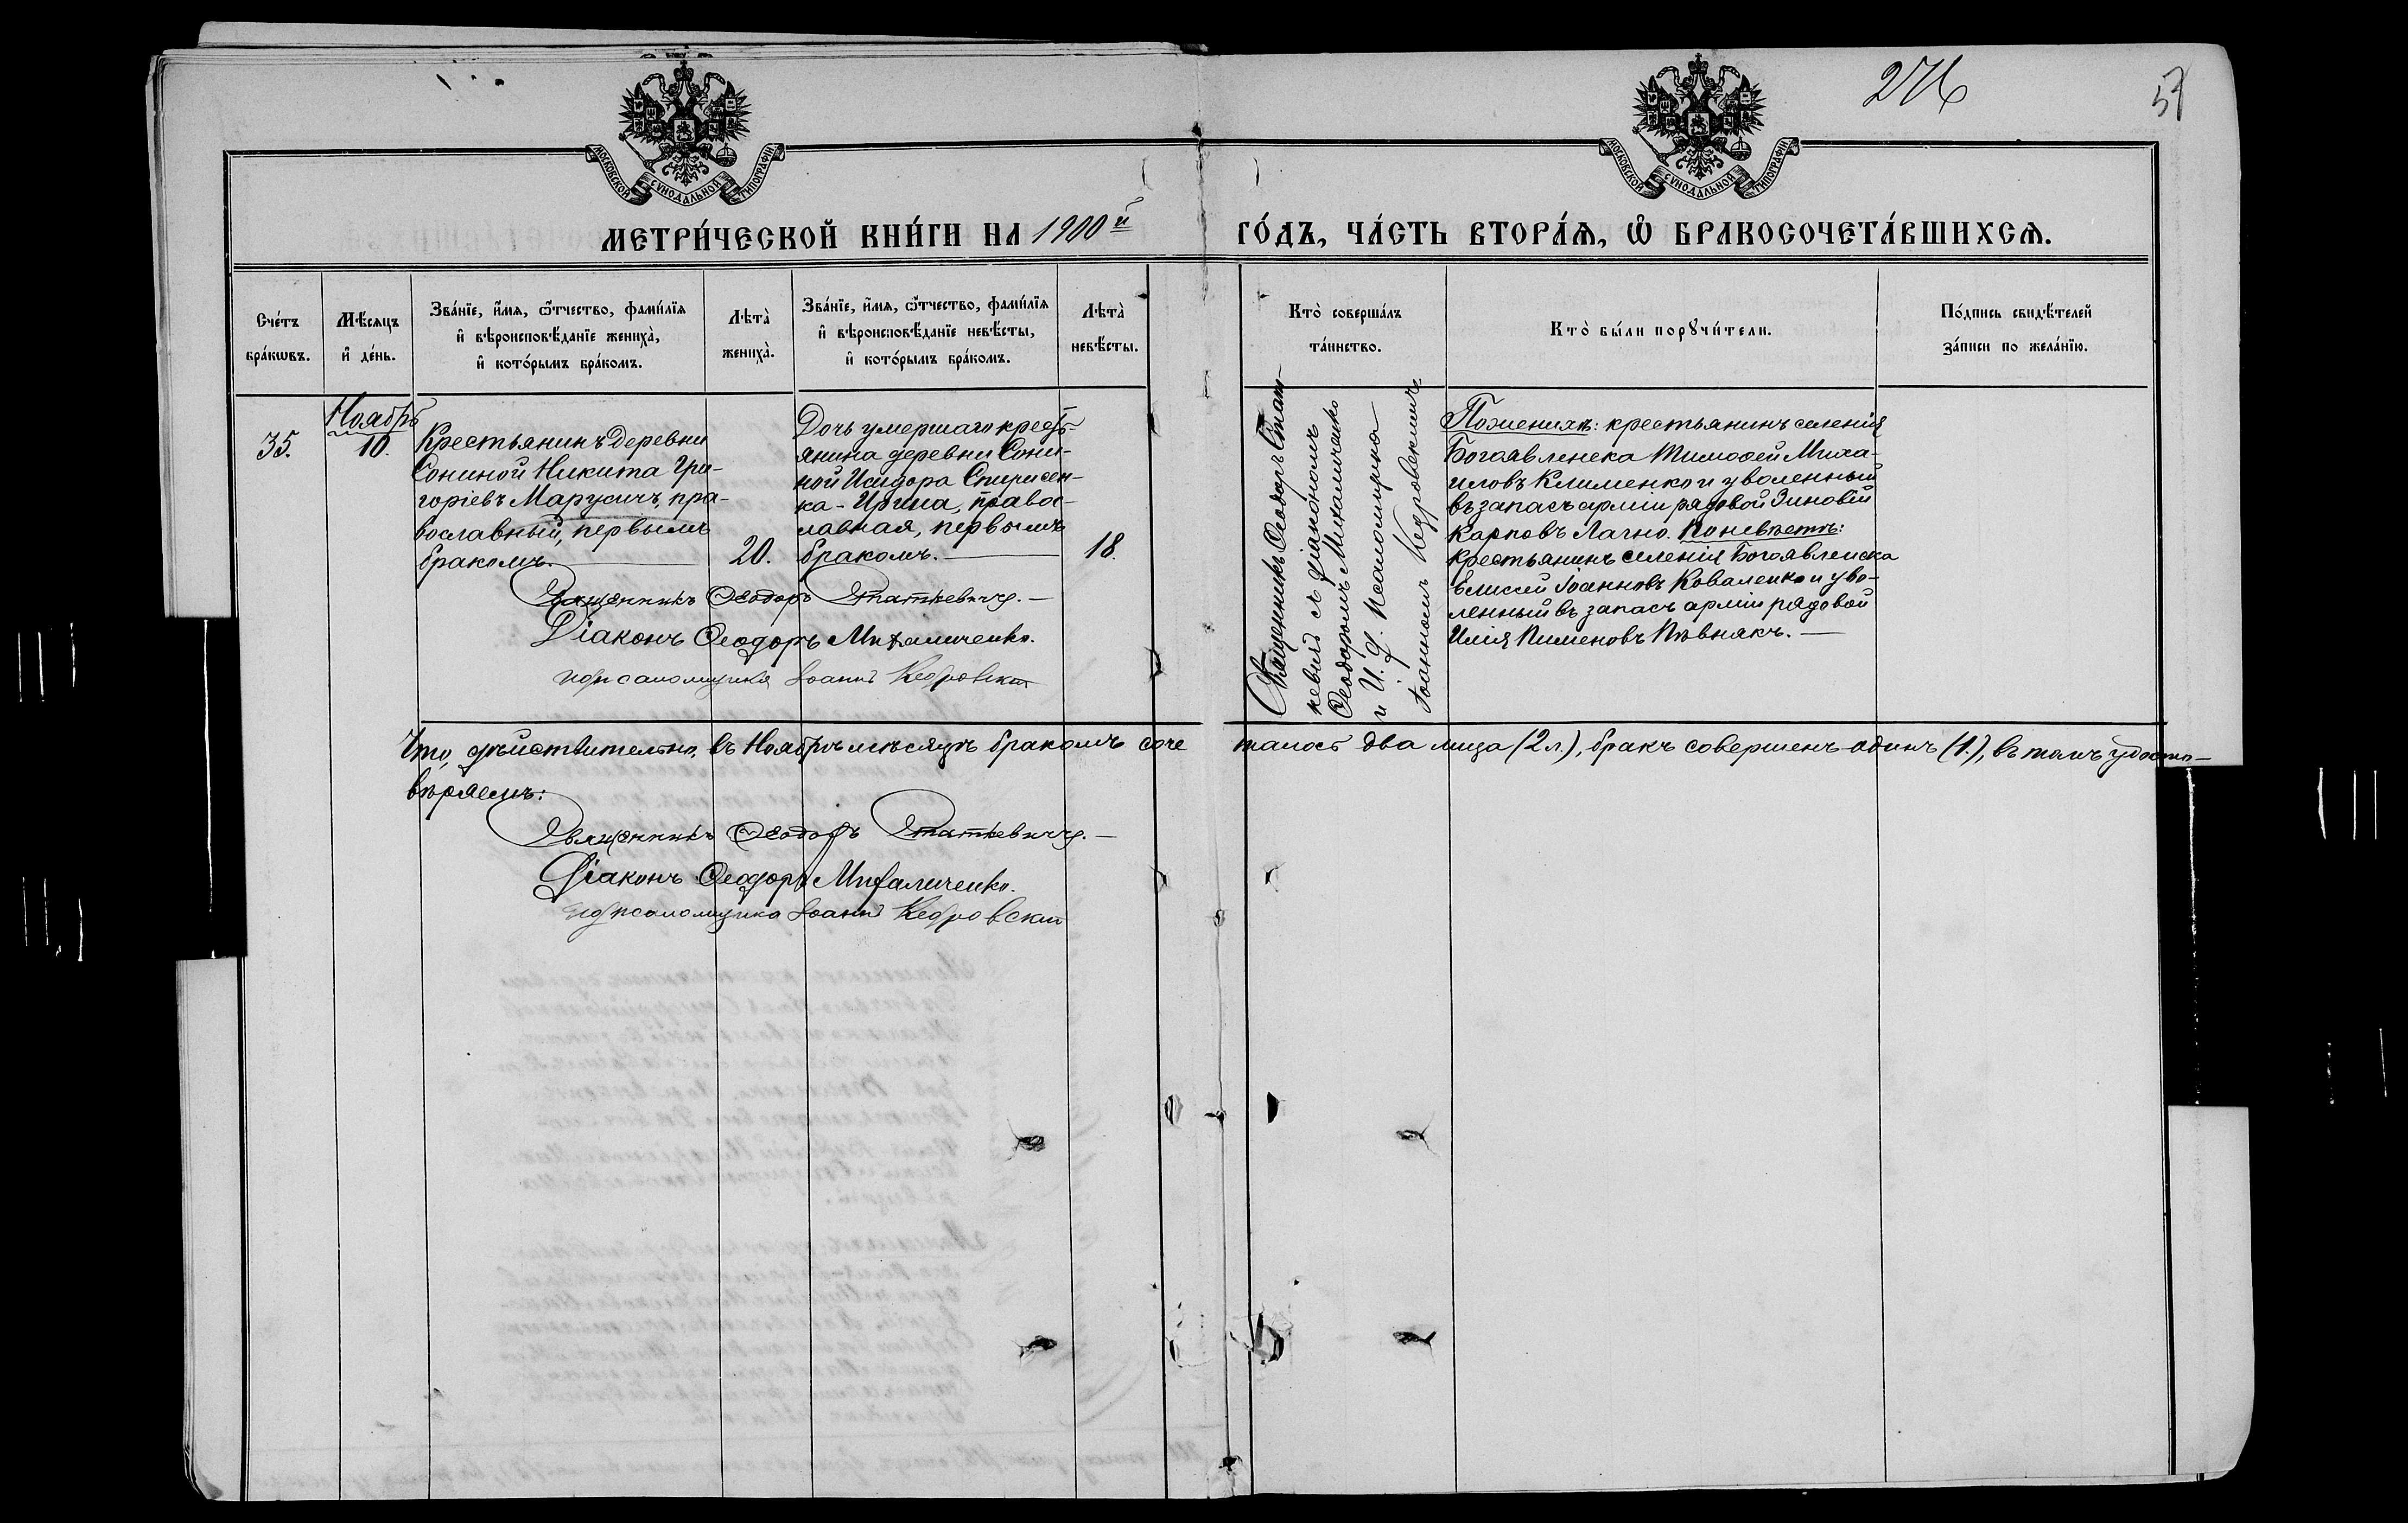 276
57
МОСКОВСКОЙ СѴНОДАЛЬНОЙ ТИПОГРАФІИ
МОСКОВСКОЙ СѴНОДАЛЬНОЙ ТИПОГРАФІИ
МЕТРИ́ЧЕСКОЙ КНИ́ГИ НА 1900й ГО́ДЪ, ЧА́СТЬ ВТОРА́Ѧ, Ѽ БРАКОСОЧЕТА́ВШИХСѦ.
Сче́тъ
бра́кѡвъ.
Мѣ́сѧцъ
и҆ де́нь.
Зва́нїе, и҆́мѧ, ѻ҆́тчество, фами́лїѧ
и҆ вѣроисповѣ́данїе жениха̀,
и҆ кото́рымъ бра́комъ.
Лѣта̀
жениха̀.
Зва́нїе, и҆́мѧ, ѻ҆́тчество, фами́лїѧ
и҆ вѣроисповѣ́данїе невѣ́сты,
и҆ кото́рымъ бра́комъ.
Лѣта̀
невѣ́сты.
Кто̀ соверша́лъ
та́инство.
Кто̀ бы́ли порꙋчи́тели.
По́дпись свидѣ́телей
за́писи по жела́нїю.
35.
Ноябрь
10.
Крестьянинъ деревни
Сониной Никита Гри-
горіевъ Марусичъ, пра-
вославный, первымъ
бракомъ.
20.
Дочь умершаго кресть-
янина деревни Сони-
ной Исидора Спирисен-
ка - Ирина, правос-
лавная, первымъ
бракомъ.
18.
Священникъ Ѳеодоръ Стат-
кевичъ съ діакономъ
Ѳеодоромъ Михаличенко
и И. д. псаломщика
Іоанномъ Кедровскимъ
По женихѣ: крестьянинъ селенія
Богоявленска Тимоѳей Миха-
иловъ Клименко и уволенный
въ запасъ арміи рядовой Зиновій
Карповъ Лагно. По невѣстѣ:
крестьянинъ селенія Богоявленска
Елисей Іоанновъ Коваленко и уво-
ленный въ запасъ арміи рядовой
Илія Пименовъ Пѣвнякъ.
Священникъ Ѳеодоръ Статкевичъ.
Діаконъ Ѳеодоръ Михаличенко.
и д псаломщика Іоаннъ Кедровскій
Что, дѣйствительно, въ Ноябрѣ мѣсяцѣ бракомъ соче талось два лица (2 л.), бракъ совершенъ одинъ (1.), въ томъ удосто-
вѣряемъ:
Священникъ Ѳеодоръ Статкевичъ.
Діаконъ Ѳеодоръ Михаличенко.
и д псаломщика Іоаннъ Кедровскій